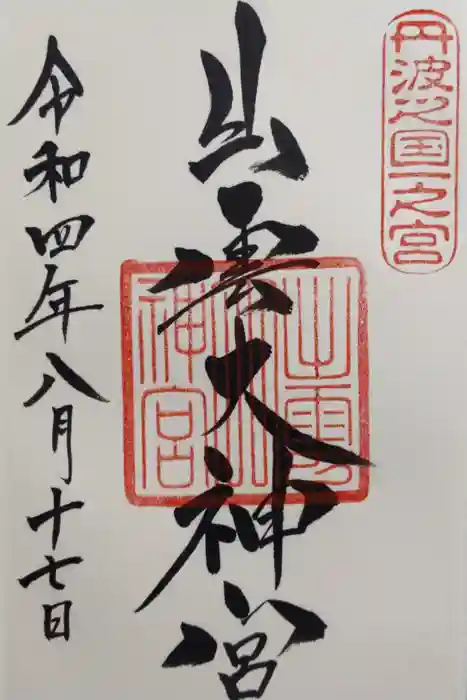 丹波之国一之宮
出雲大神宮
出雲
大
神宮
令和四年八月十七日